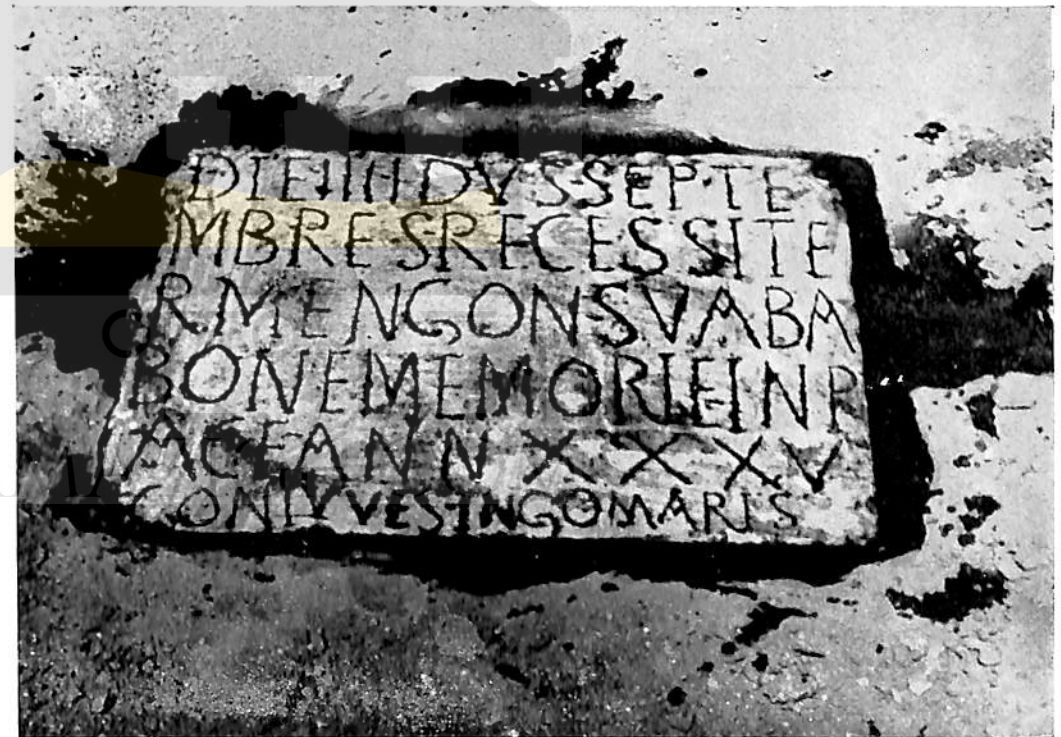 DIE IIII IDVS SEPTE
MBRES RECESSIT E
RMENGON SVABA
BONE MEMORIE IN P
ACE ANN XXXV
CONIVVES INGOMARIS